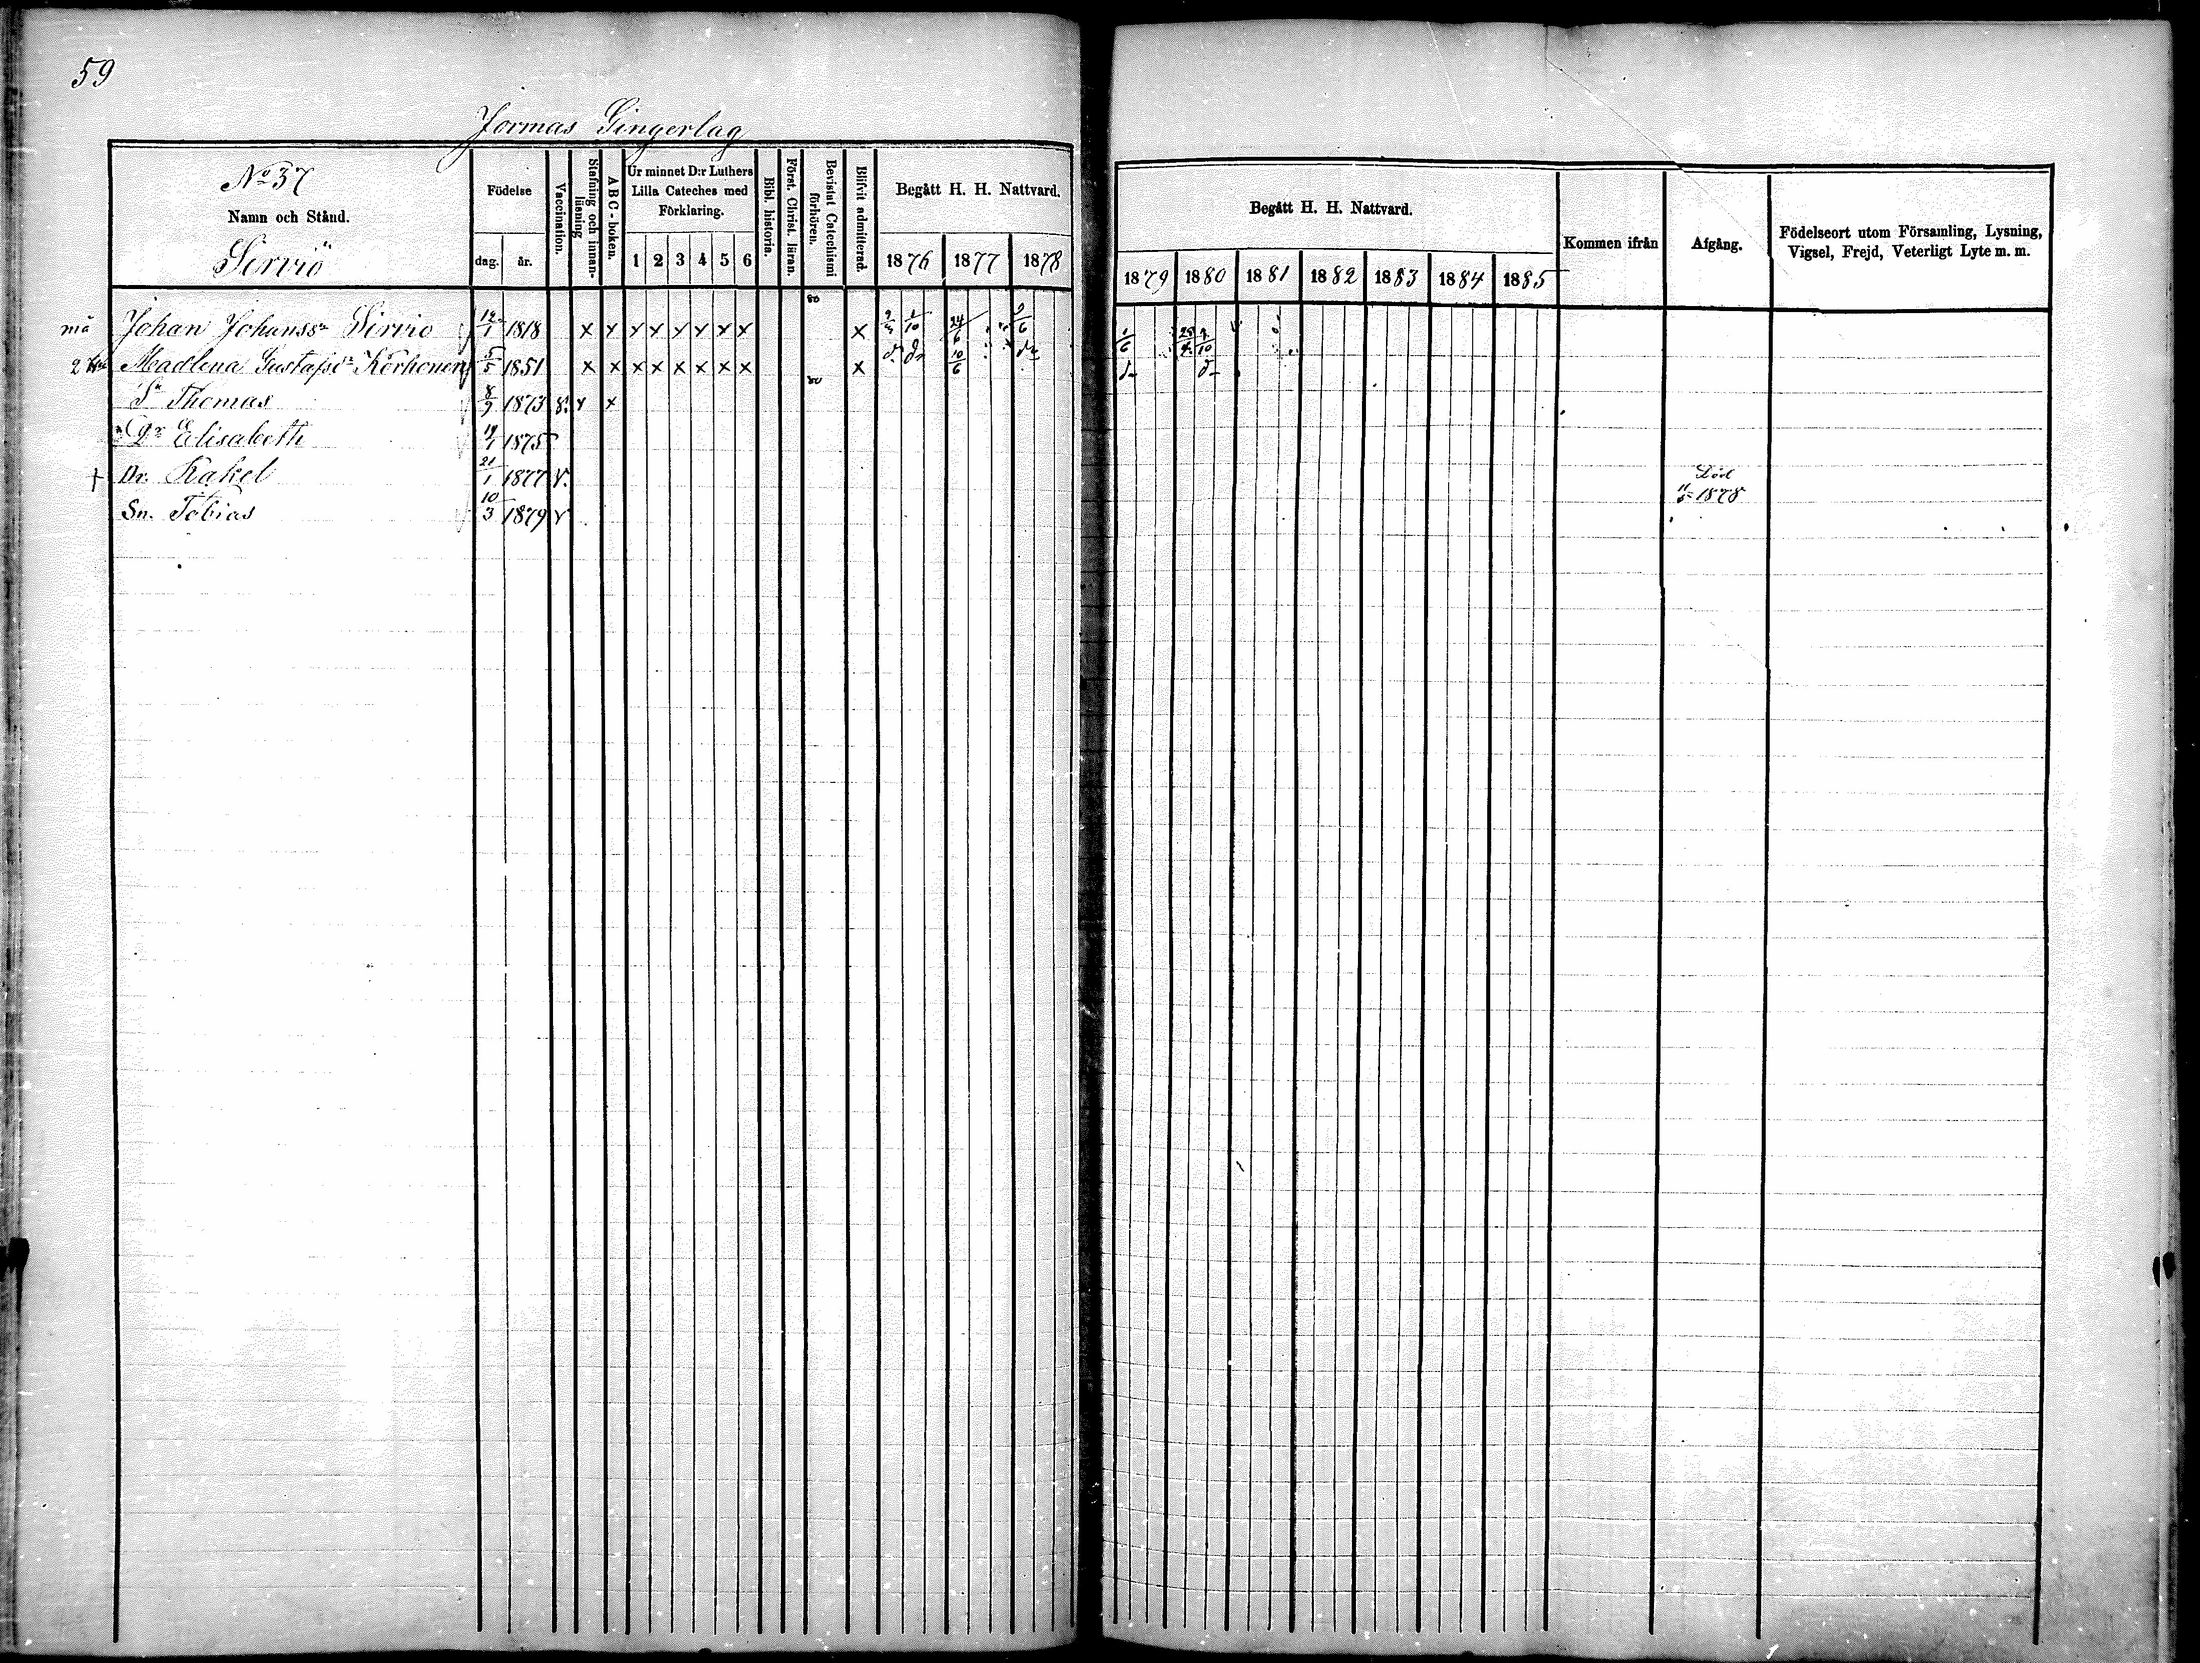 59
Jormas Gingerlag
No 37
Namn och Stånd.
Sirviö
Födelse
dag. år.
Vaccination.
Stafning och innanläsning
ABC-boken.
Ur minnet D:r Luthers Lilla Cateches med Förklaring.
1 2 3 4 5 6
Bibl. historia.
Först. Christ. läran.
Bevistat Catechismi förhören.
Blifvit admitterad.
Begått H. H. Nattvard.
1876 1877 1878
Begått H. H. Nattvard.
1879 1880 1881 1882 1883 1884 1885
Kommen ifrån
Afgång.
Födelseort utom Församling, Lysning, Vigsel, Frejd, Veterligt Lyte m. m.
80
må Johan Johanss:n Sirviö 12/1 1818 x x x x x x x x x 1/10 24/6 1/6 25/4 7/10
Madlena Gustafsd:r Korhonen 5/5 1851 x x x x x x x x x d:o 10/6 d:o d:o d:o
80
Sn Thomas 8/9 1873 v. x x
Dr Elisabeth 19/1 1875
† Dr. Rakel 21/1 1877 v. Död 11/5 1878
Sn. Tobias 10/3 1879 v